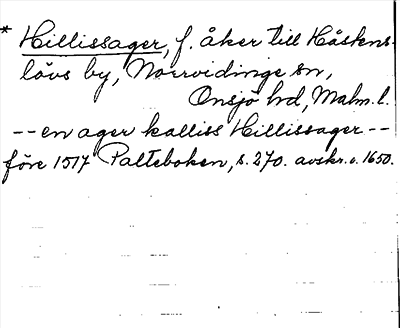 * Hillissager, f. åker till Håstens-
lövs by, Norrvidinge sn,
Onsjö hd, Malm. l.
-- en ager kalliss Hillissager --
före 1517 Palteboken, s. 270. avskr. c. 1650.